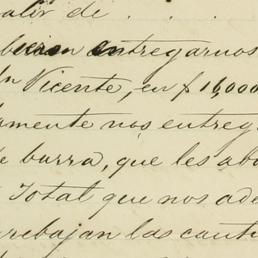 alir de . . .
bieron entregarnos
Vicente, en $ 16,000
amente nos entrega
e burra, que les abo
Total que nos ade
rebajan las canti